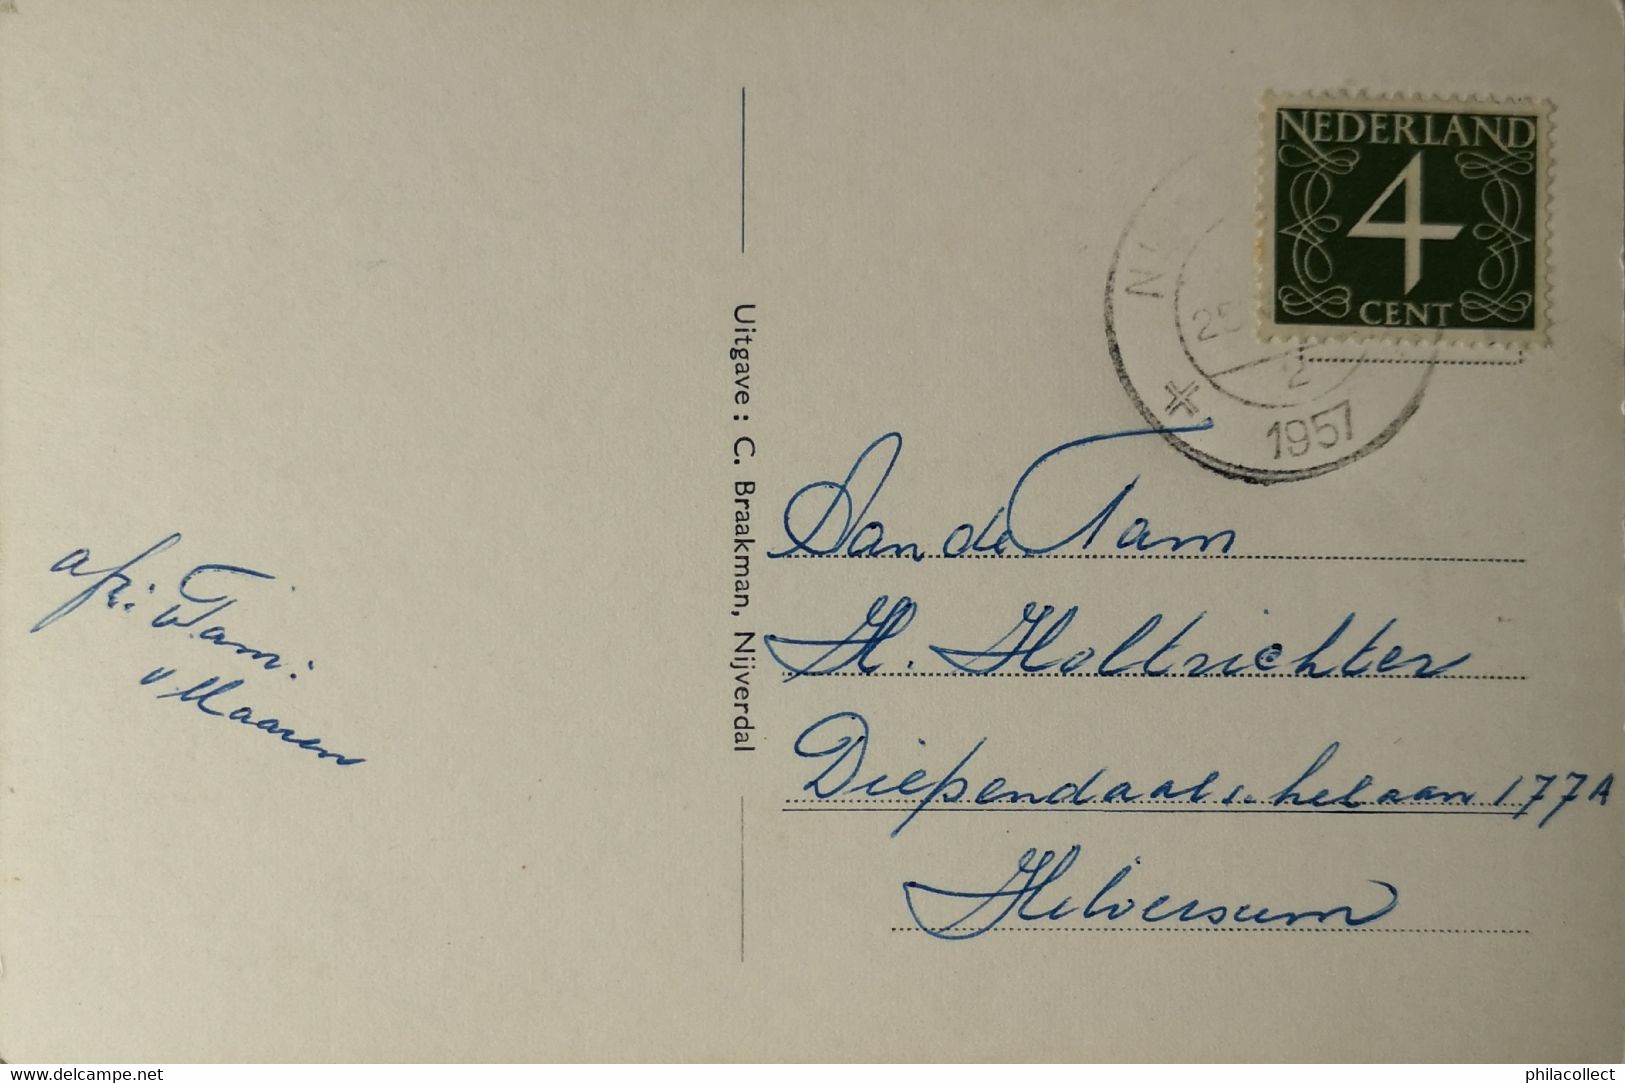 NEDERLAND
4
CENT
25
2
1957
Uitgave : C. Braakman, Nijverdal
Aan de Fam
H. Holtrichter
Diependaalschelaan 177A
Hilversum
afz: Fam:
v Maaren
www.delcampe.net
philacollect